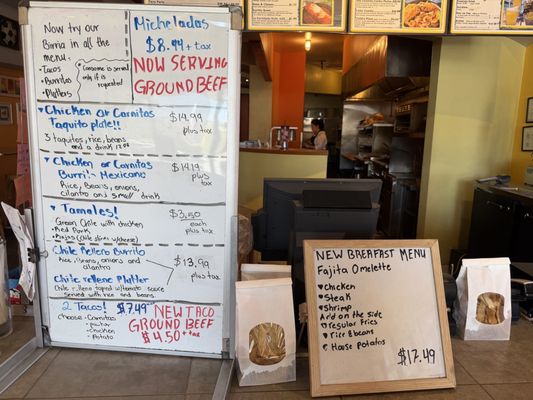 Now try our
Birria in all the
menu
-Tacos
-Burritos
-Plates
Consome is
served
only if is
requested
Micheladas
$8.99 + tax
NOW SERVING
GROUND BEEF
Chicken or Carnitas
Taquito plate!!
3 taquitos, rice, beans
and a drink 12oz
$14.99
plus tax
Chicken or Carnitas
Burrito Mexicano
Rice, Beans, onions,
cilantro and small drink
$14.19
plus
tax
Tamales!
- Green Chile with chicken
- Red Pork
- Rajas (chile strips w/cheese)
$3.50
each
plus tax
Chile Relleno Burrito
Rice, beans, onions and
cilantro
Chile relleno Platter
Chile relleno topped w/tomato sauce
served with rice and beans
$13.99
plus tax
2 Tacos! $7.49
Choose - Carnitas
- Chicken
- Potato
NEW TACO
GROUND BEEF
$4.50 + tax
NEW BREAKFAST MENU
Fajita Omelette
chicken
steak
shrimp
Add on the side
Regular fries
Rice & beans
House potatos
$17.49